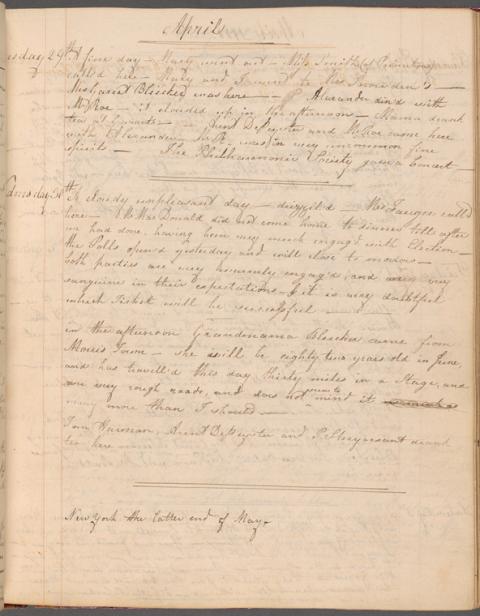 April
esday 29th A fine day — Mary went out — Miss Smith
called here — Mary and I went to Mrs
Miss Bleecker was here — Alexander din'd with
McRoe — it clouded up in the afternoon — Mama drank
tea at — Aunt DePeyster and McRoe came here
with Alexander — Mr R. was in very uncommon fine
spirits — The Philharmonic Society gave a Concert —
dnesday 30th A cloudy unpleasant day — drizzled — Mrs call'd
here — Mr MacDonald did not come home to dinner till after
we had done, having been very much engag'd with Election —
the Polls opened yesterday and will close to morrow —
both parties are very warmly engag'd, and very
sanguine in their expectations — it is very doubtful
which Ticket will be successful —
in the afternoon Grandmama Bleecker came from
Morris Town — she will be eighty two years old in June,
and has travell'd this day thirty miles in a Stage, and
over very rough roads, and does not mind it
many more than I should —
Tom, Aunt DePeyster and P. Stuyvesant drank
tea here —
New York the latter end of May.